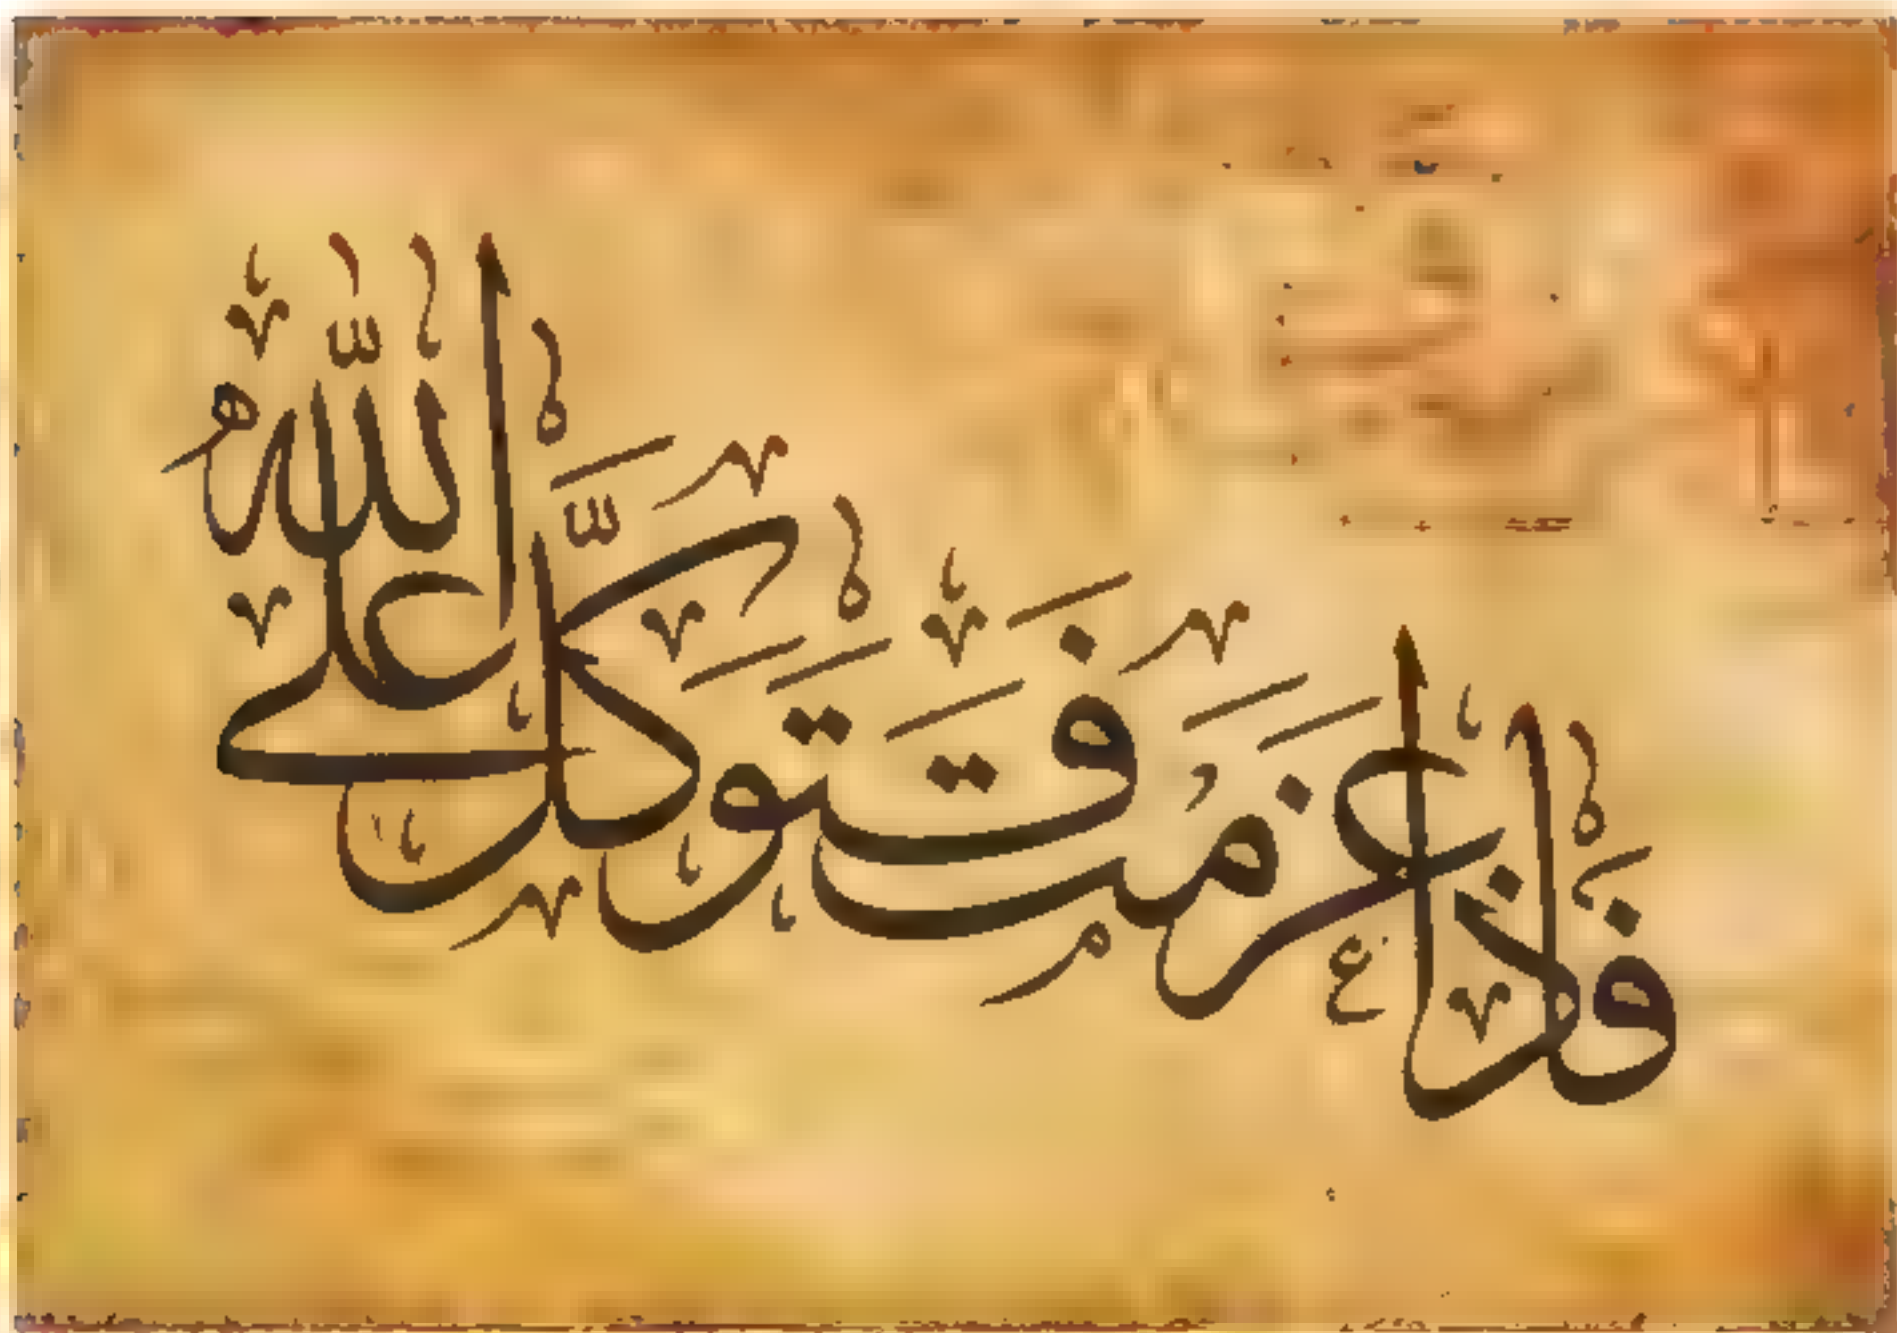 فَإِذَا عَزَمْتَ فَتَوَكَّلْ عَلَى اللّٰهِ